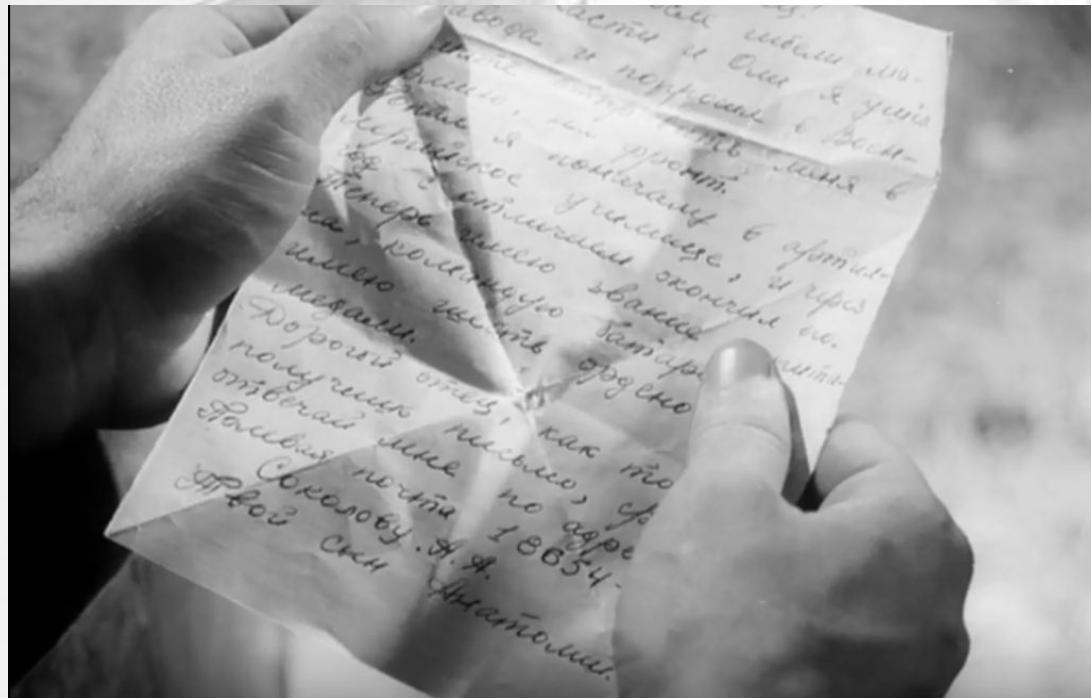 гибели ма-
и Оли я ушёл
завода и попросил в воен-
отправить меня в
на фронт.
я поначалу в артил-
лерийское училище, и через
год с отличием окончил его.
Теперь имею звание капита-
на, командую батаре
имею шесть ордено
медали.
Дорогой отец, как то
получишь письмо, ср
отвечай мне по адре
Полевая почта 18654-
Соколову. А. А.
Твой сын Анатолий.